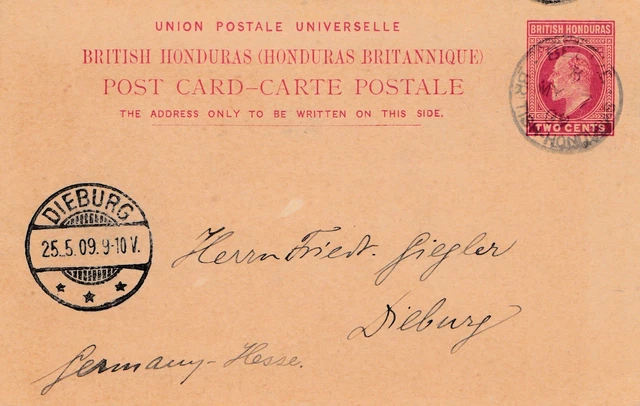 UNION POSTALE UNIVERSELLE
BRITISH HONDURAS (HONDURAS BRITANNIQUE)
POST CARD–CARTE POSTALE
THE ADDRESS ONLY TO BE WRITTEN ON THIS SIDE.
BRITISH HONDURAS
TWO CENTS
DIEBURG
25.5.09.9-10 V.
Herrn Friedr. Giegler
Dieburg
Germany-Hesse.